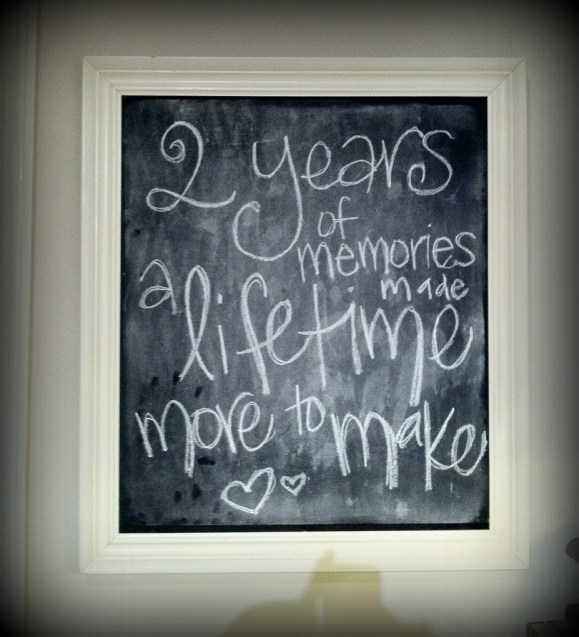 2 years
of
memories
made
a lifetime
more to make